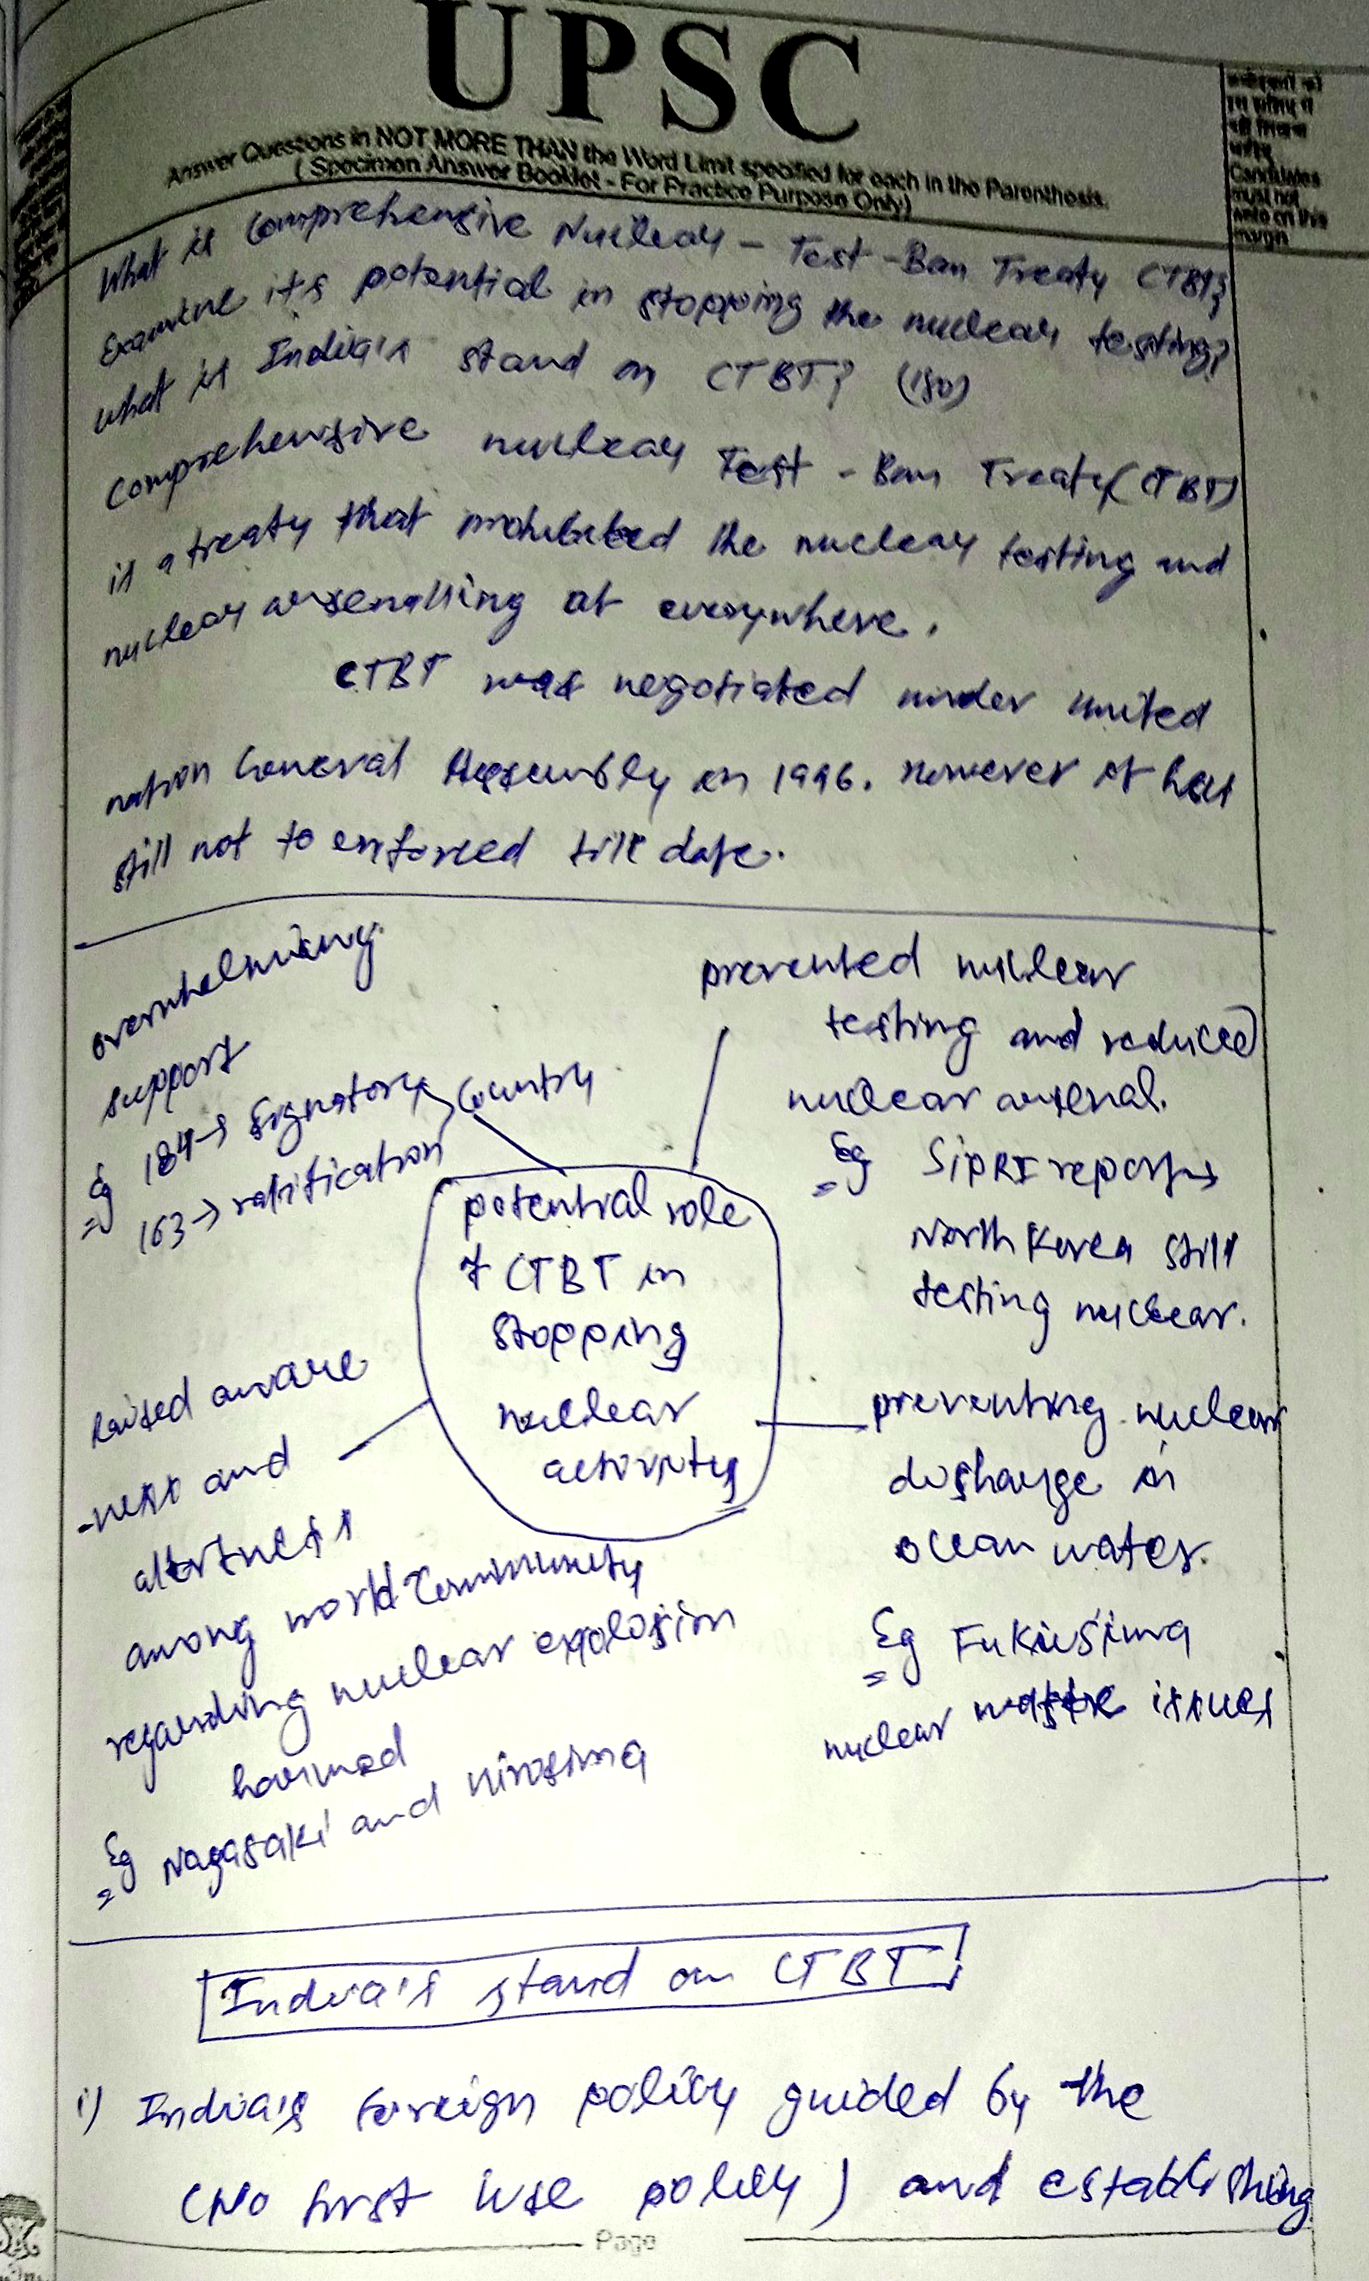 UPSC
Answer Questions in NOT MORE THAN the Word Limit specified for each in the Parenthesis.
(Specimen Answer Booklet - For Practice Purpose Only)
Candidates
must not
write on this
margin
What is Comprehensive Nuclear - Test - Ban Treaty CTBT?
Examine its potential in stopping the nuclear testing?
what is India's stand on CTBT? (150)
Comprehensive nuclear Test - Ban Treaty (CTBT)
is a treaty that prohibited the nuclear testing and
nuclear arsenalling at everywhere.
CTBT was negotiated under united
nation General Assembly in 1996. However it has
still not to enforced till date.
overwhelming
support
Eg 184 → Signatory Country
163 → ratification
prevented nuclear
testing and reduced
nuclear arsenal.
Eg SIPRI reports
North Korea still
testing nuclear.
potential role
of CTBT in
stopping
nuclear
activity
Raised aware
-ness and
alertness
among world community
regarding nuclear explosion
harmed
Eg Nagasaki and Hirosima
preventing nuclear
discharge in
ocean water.
Eg Fukusima
nuclear waste issues
India's stand on CTBT
i) India's foreign policy guided by the
(No first use policy) and establishing
Page